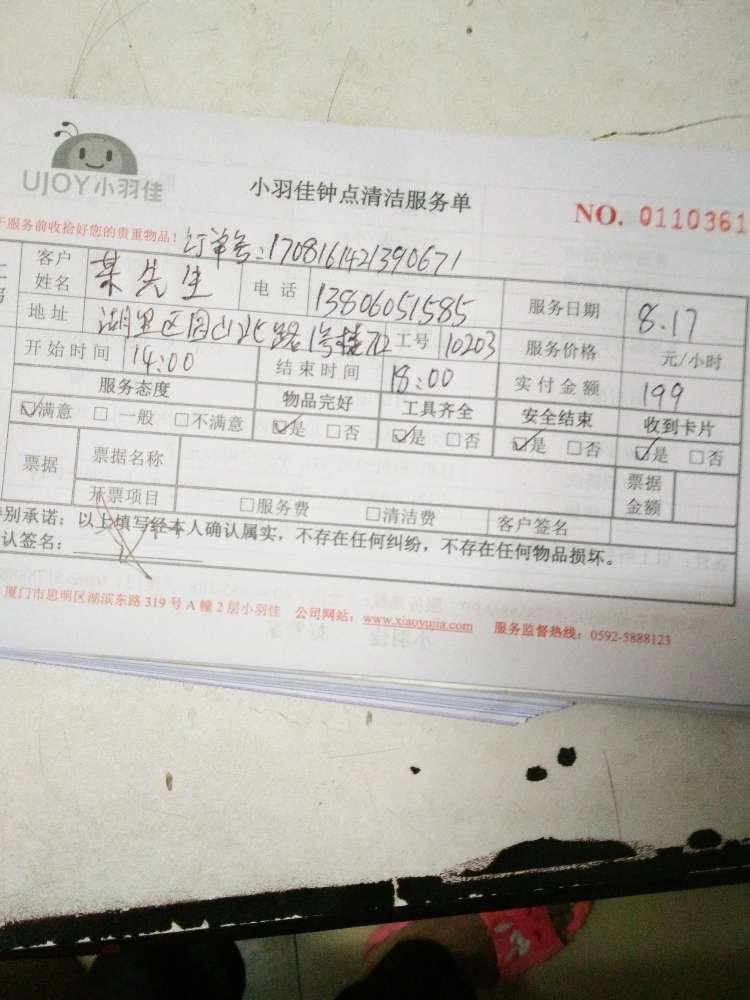 UJOY小羽佳
小羽佳钟点清洁服务单
NO. 0110361
服务前收拾好您的贵重物品！ 订单号：1708161421390671
客户姓名 某先生 电话 13806051585 服务日期 8.17
地址 湖里区园山北路1号楼702 工号 10203 服务价格 元/小时
开始时间 14:00 结束时间 18:00 实付金额 199
服务态度 物品完好 工具齐全 安全结束 收到卡片
☑满意 □一般 □不满意 ☑是 □否 ☑是 □否 ☑是 □否 ☑是 □否
票据 票据名称 票据金额
开票项目 □服务费 □清洁费 客户签名
别承诺：以上填写经本人确认属实，不存在任何纠纷，不存在任何物品损坏。
认签名：
厦门市思明区湖滨东路319号A幢2层小羽佳 公司网站：www.xiaoyujia.com 服务监督热线：0592-5888123